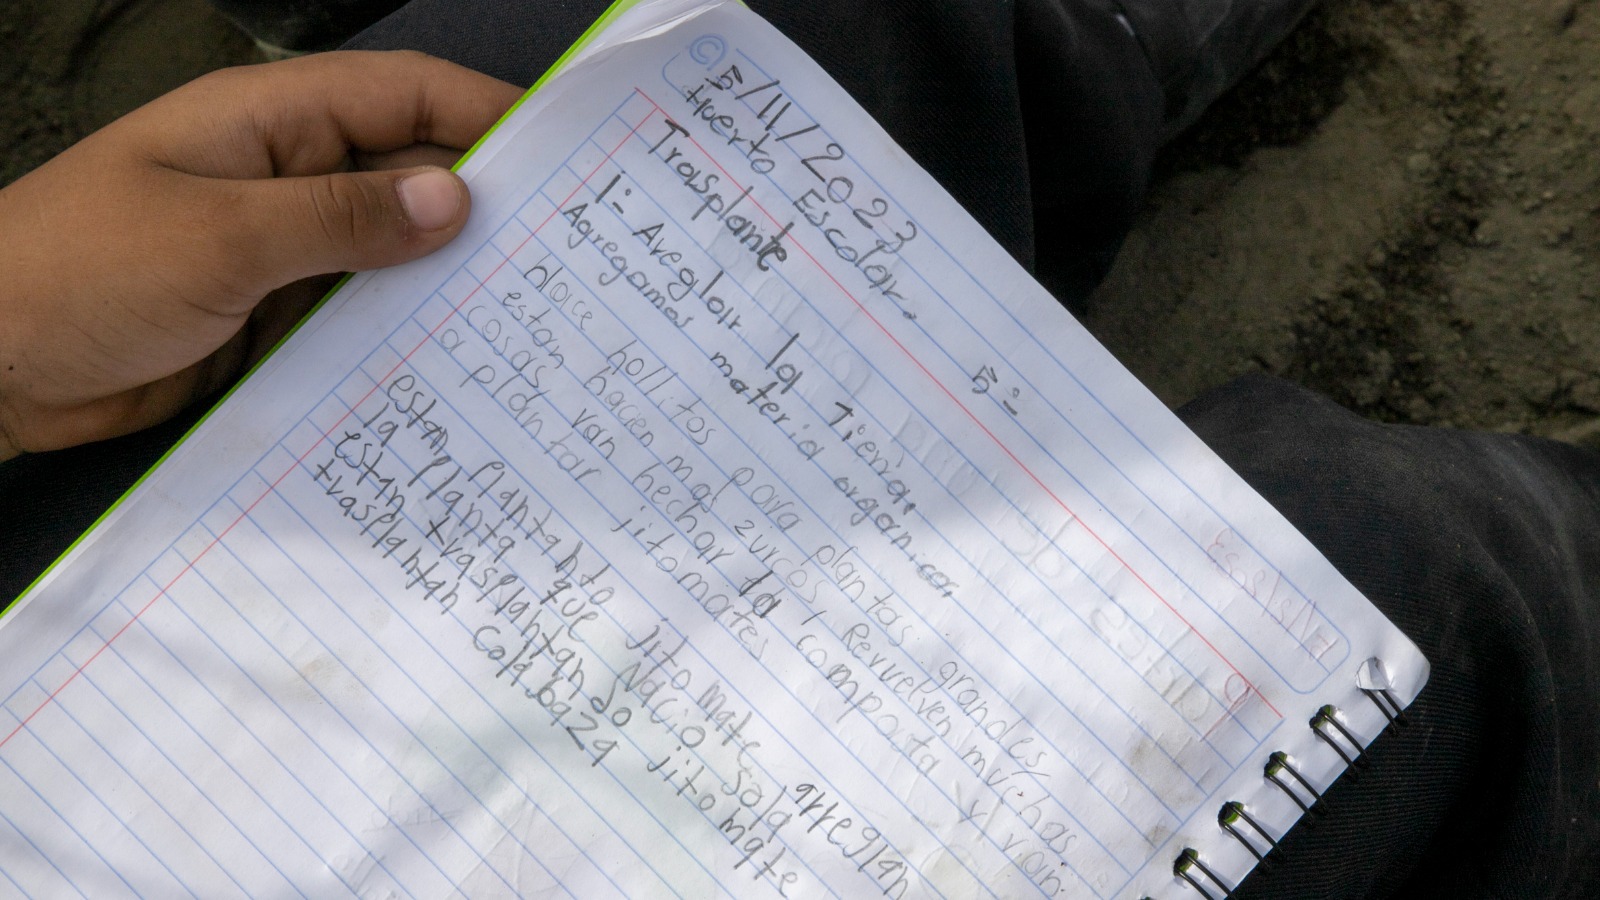 5/11/2023
Huerto Escolar.
Trasplante 5:-
1:- Areglar la Tierra.
Agregamos materia organica,
hace hollitos para plantas grandes/
estan hacien mas zurcos / Revuelven muchas
cosas van hechar la composta y/ van
a plantar jitomates
estan plantanto jitomate arreglan
la planta que Nacio sola
estan trasplantando jitomate
trasplantan Calabaza